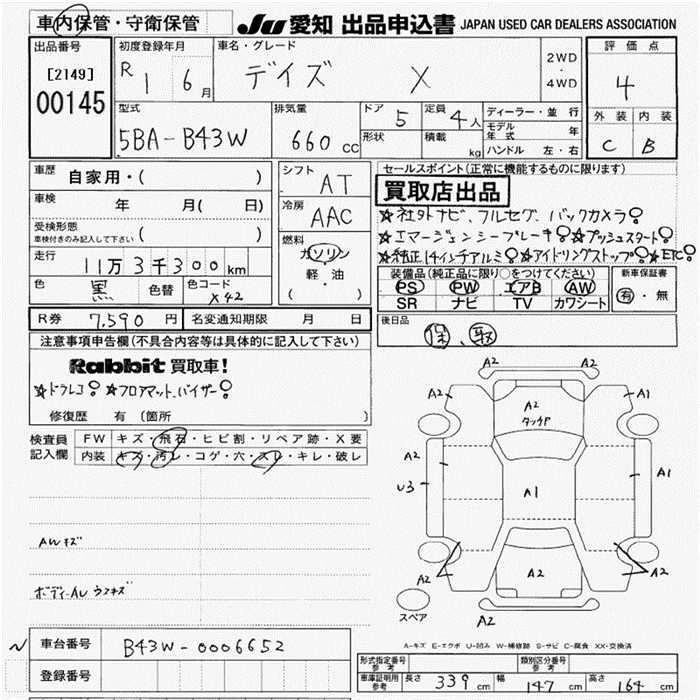 車内保管・守衛保管 JU 愛知 出品申込書 JAPAN USED CAR DEALERS ASSOCIATION
出品番号 初度登録年月 車名・グレード 2WD・4WD 評価点
[2149] R 1 6月 デイズ X 4
00145
型式 排気量 ドア 定員 ディーラー・並行 外装 内装
5BA-B43W 660cc 5 4人 モデル年式 年 C B
形状 積載 kg ハンドル 左・右
車歴 自家用・( ) シフト AT セールスポイント(正常に機能するものに限ります)
買取店出品
車検 年 月( 日) 冷房 AAC ☆社外ナビ、フルセグ、バックカメラ
受検形態 ( ) ☆エマージェンシーブレーキ ☆プッシュスタート
車検付きのみ記入して下さい
走行 11万3千300km 燃料 ガソリン・軽・油 ( ) ☆純正14インチアルミ ☆アイドリングストップ ☆ETC
色 黒 色替 色コード X42 装備品(純正品に限り○をつけてください) 新車保証書
PS PW エアB AW 有・無
SR ナビ TV カワシート
R券 7,590円 名変通知期限 月 日 後日品
保、取
注意事項申告欄(不具合内容等は具体的に記入して下さい)
Rabbit 買取車!
☆ドラレコ ☆フロアマット、バイザー
修復歴 有(箇所 )
検査員記入欄 FW キズ・飛石・ヒビ割・リペア跡・X要
内装 キズ・汚レ・コゲ・穴・スレ・キレ・破レ
A2
A2 A2 タッチP A1
A2 U3 A1 A1
A2 A2 A2
スペア A2
AWキズ
ボディーAUウスキズ
車台番号 B43W-0006652
登録番号
A-キズ E-エクボ U-凹み W-補修跡 S-サビ C-腐食 XX-交換済
形式指定番号 参考 類別区分番号 参考
車庫証明用 参考 長さ 339cm 幅 147cm 高さ 164cm